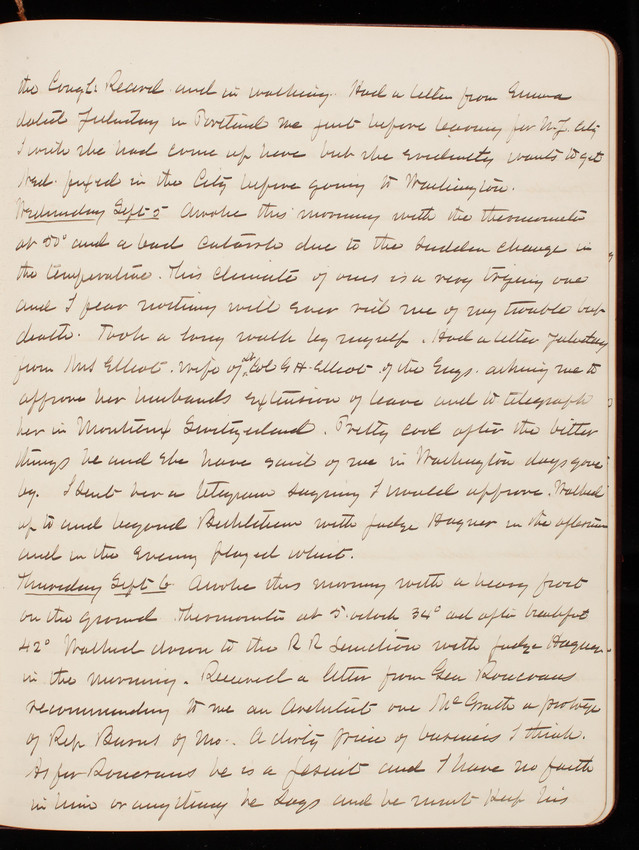 the Congl: Record and in walking. Had a letter from Emma
dated Saturday in Portland Me just before leaving for N.Y. City
I wish she had come up here but she evidently wants to get
fixed in the City before going to Washington.
Wednesday Sept 5 Awoke this morning with the thermometer
at 50° and a bad catarrh due to the sudden change in
the temperature. This climate of ours is a very trying one
and I fear nothing will ever rid me of my trouble but
death. Took a long walk by myself. Had a letter
from Mrs Elliot. wife of Lt. Col G H. Elliot of the Engs. asking me to
approve her husbands extension of leave and to telegraph
her in Montreux Switzerland. Pretty cool after the bitter
things he and she have said of me in Washington days gone
by. I sent her a telegram saying I would approve. Walked
up to and beyond Bethlehem with Judge Hagner in the afternoon
and in the evening played whist.
Thursday Sept 6 Awoke this morning with a heavy frost
on the ground. Thermometer at 5. oclock 34° and after breakfast
42° Walked down to the R R Junction with Judge Hagner
in the morning. Received a letter from Gen Rosecrans
recommending to me an Architect one McGrath a protege
of Rep Burns of Mo-. A dirty piece of business I think.
As for Rosecrans he is a Jesuit and I have no faith
in him or anything he says and he must keep his